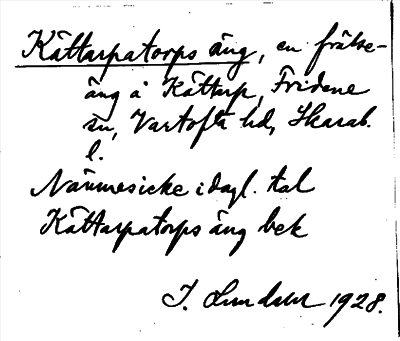 Kättarpatorps äng, en frälse-
äng å Kättarp, Fridene
sn, Vartofta hd, Skarab.
l.
Namnes icke i dagl. tal
Kättarpatorps äng bek
J. 1928.